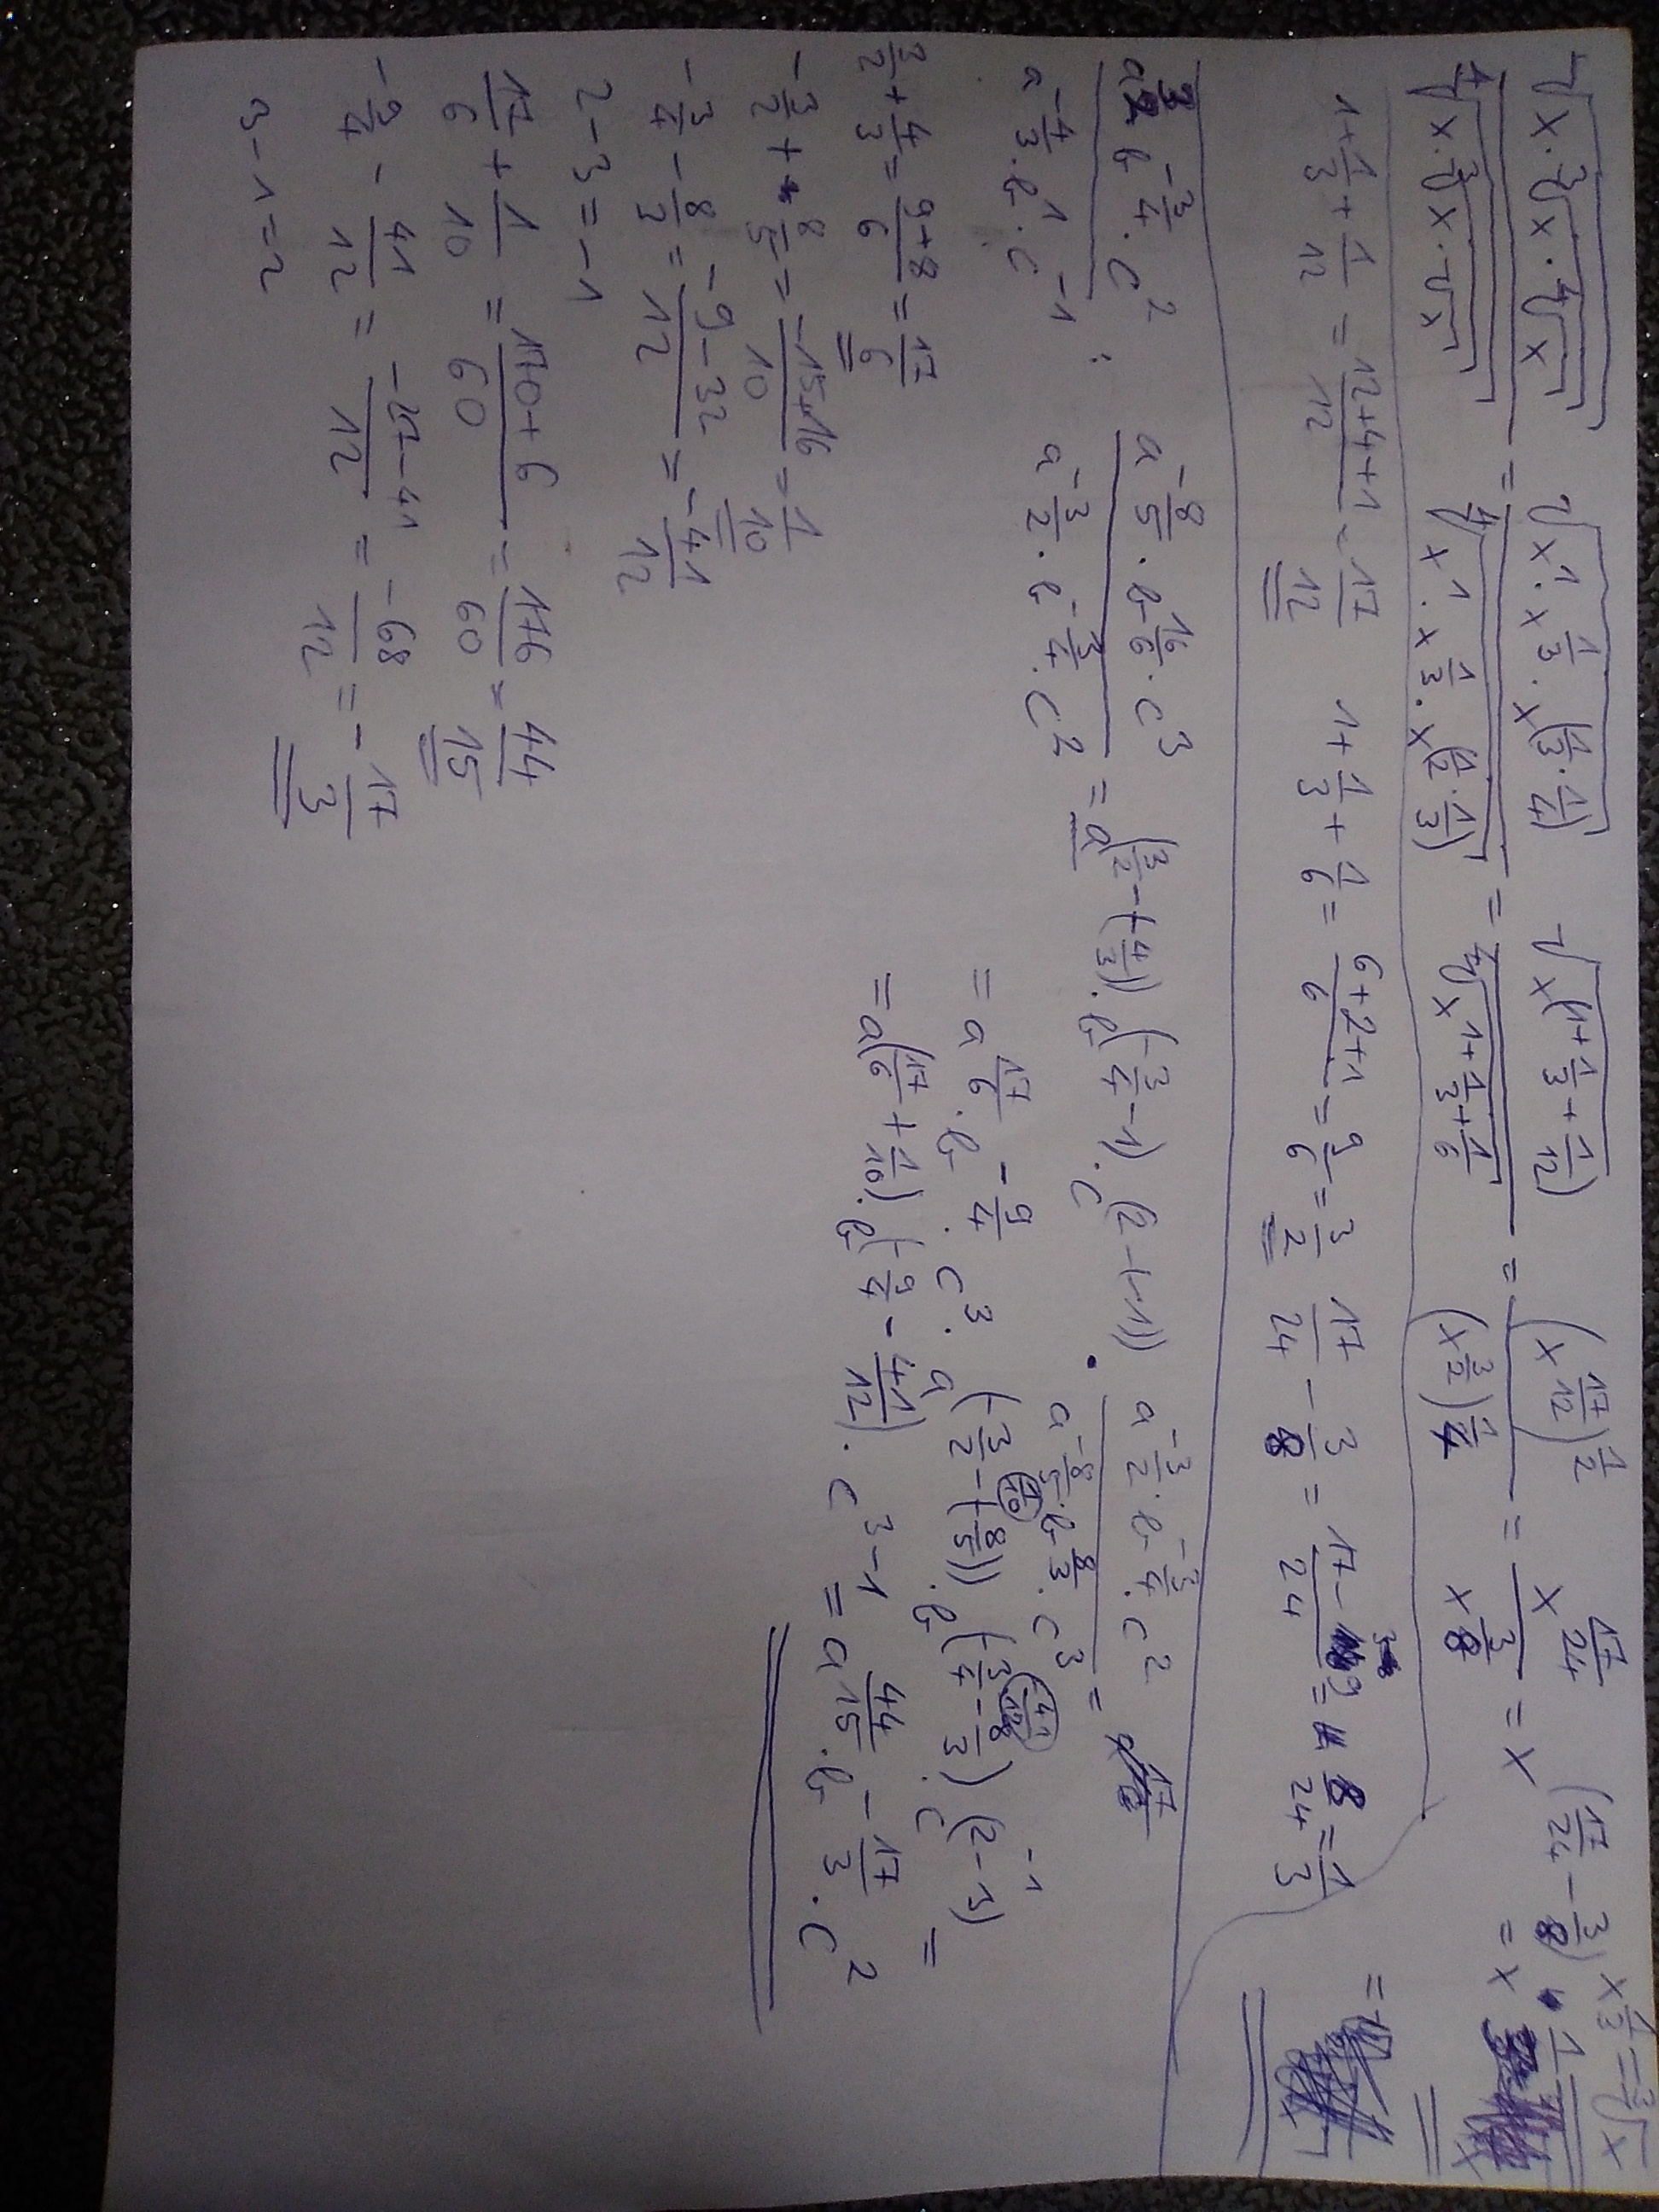 √(x·∛(x·∜x)) / ∜(x·∛(x·√x)) = √(x^1·x^(1/3)·x^(1/3·1/4)) / ∜(x^1·x^(1/3)·x^(1/2·1/3)) = √(x^(1+1/3+1/12)) / ∜(x^(1+1/3+1/6)) = (x^(17/12))^(1/2) / (x^(3/2))^(1/4) = x^(17/24) / x^(3/8) = x^(17/24 - 3/8) = x^(1/3) = ∛x
1+1/3+1/12 = (12+4+1)/12 = 17/12 1+1/3+1/6 = (6+2+1)/6 = 9/6 = 3/2 17/24 - 3/8 = 8/24 = 1/3
(a^(3/2) b^(-3/4)·c^2) / (a^(-4/3)·b^1·c^(-1)) : (a^(-8/5)·b^(16/6)·c^3) / (a^(-3/2)·b^(-3/4)·c^2) = a^(3/2-(-4/3))·b^(-3/4-1)·c^(2-(-1))·(a^(-3/2)·b^(-3/4)·c^2) / (a^(-8/5)·b^(8/3)·c^3) =
= a^(17/6)·b^(-9/4)·c^3·a^(-3/2-(-8/5))·b^(-3/4-8/3)·c^(2-3) =
1/10 -41/12 -1
= a^(17/6+1/10)·b^(-9/4-41/12)·c^(3-1) = a^(44/15)·b^(-17/3)·c^2
3/2+4/3 = (9+8)/6 = 17/6
-3/2+8/5 = (-15+16)/10 = 1/10
-3/4-8/3 = (-9-32)/12 = -41/12
2-3=-1
17/6+1/10 = (170+6)/60 = 176/60 = 44/15
-9/4-41/12 = (-27-41)/12 = -68/12 = -17/3
3-1=2